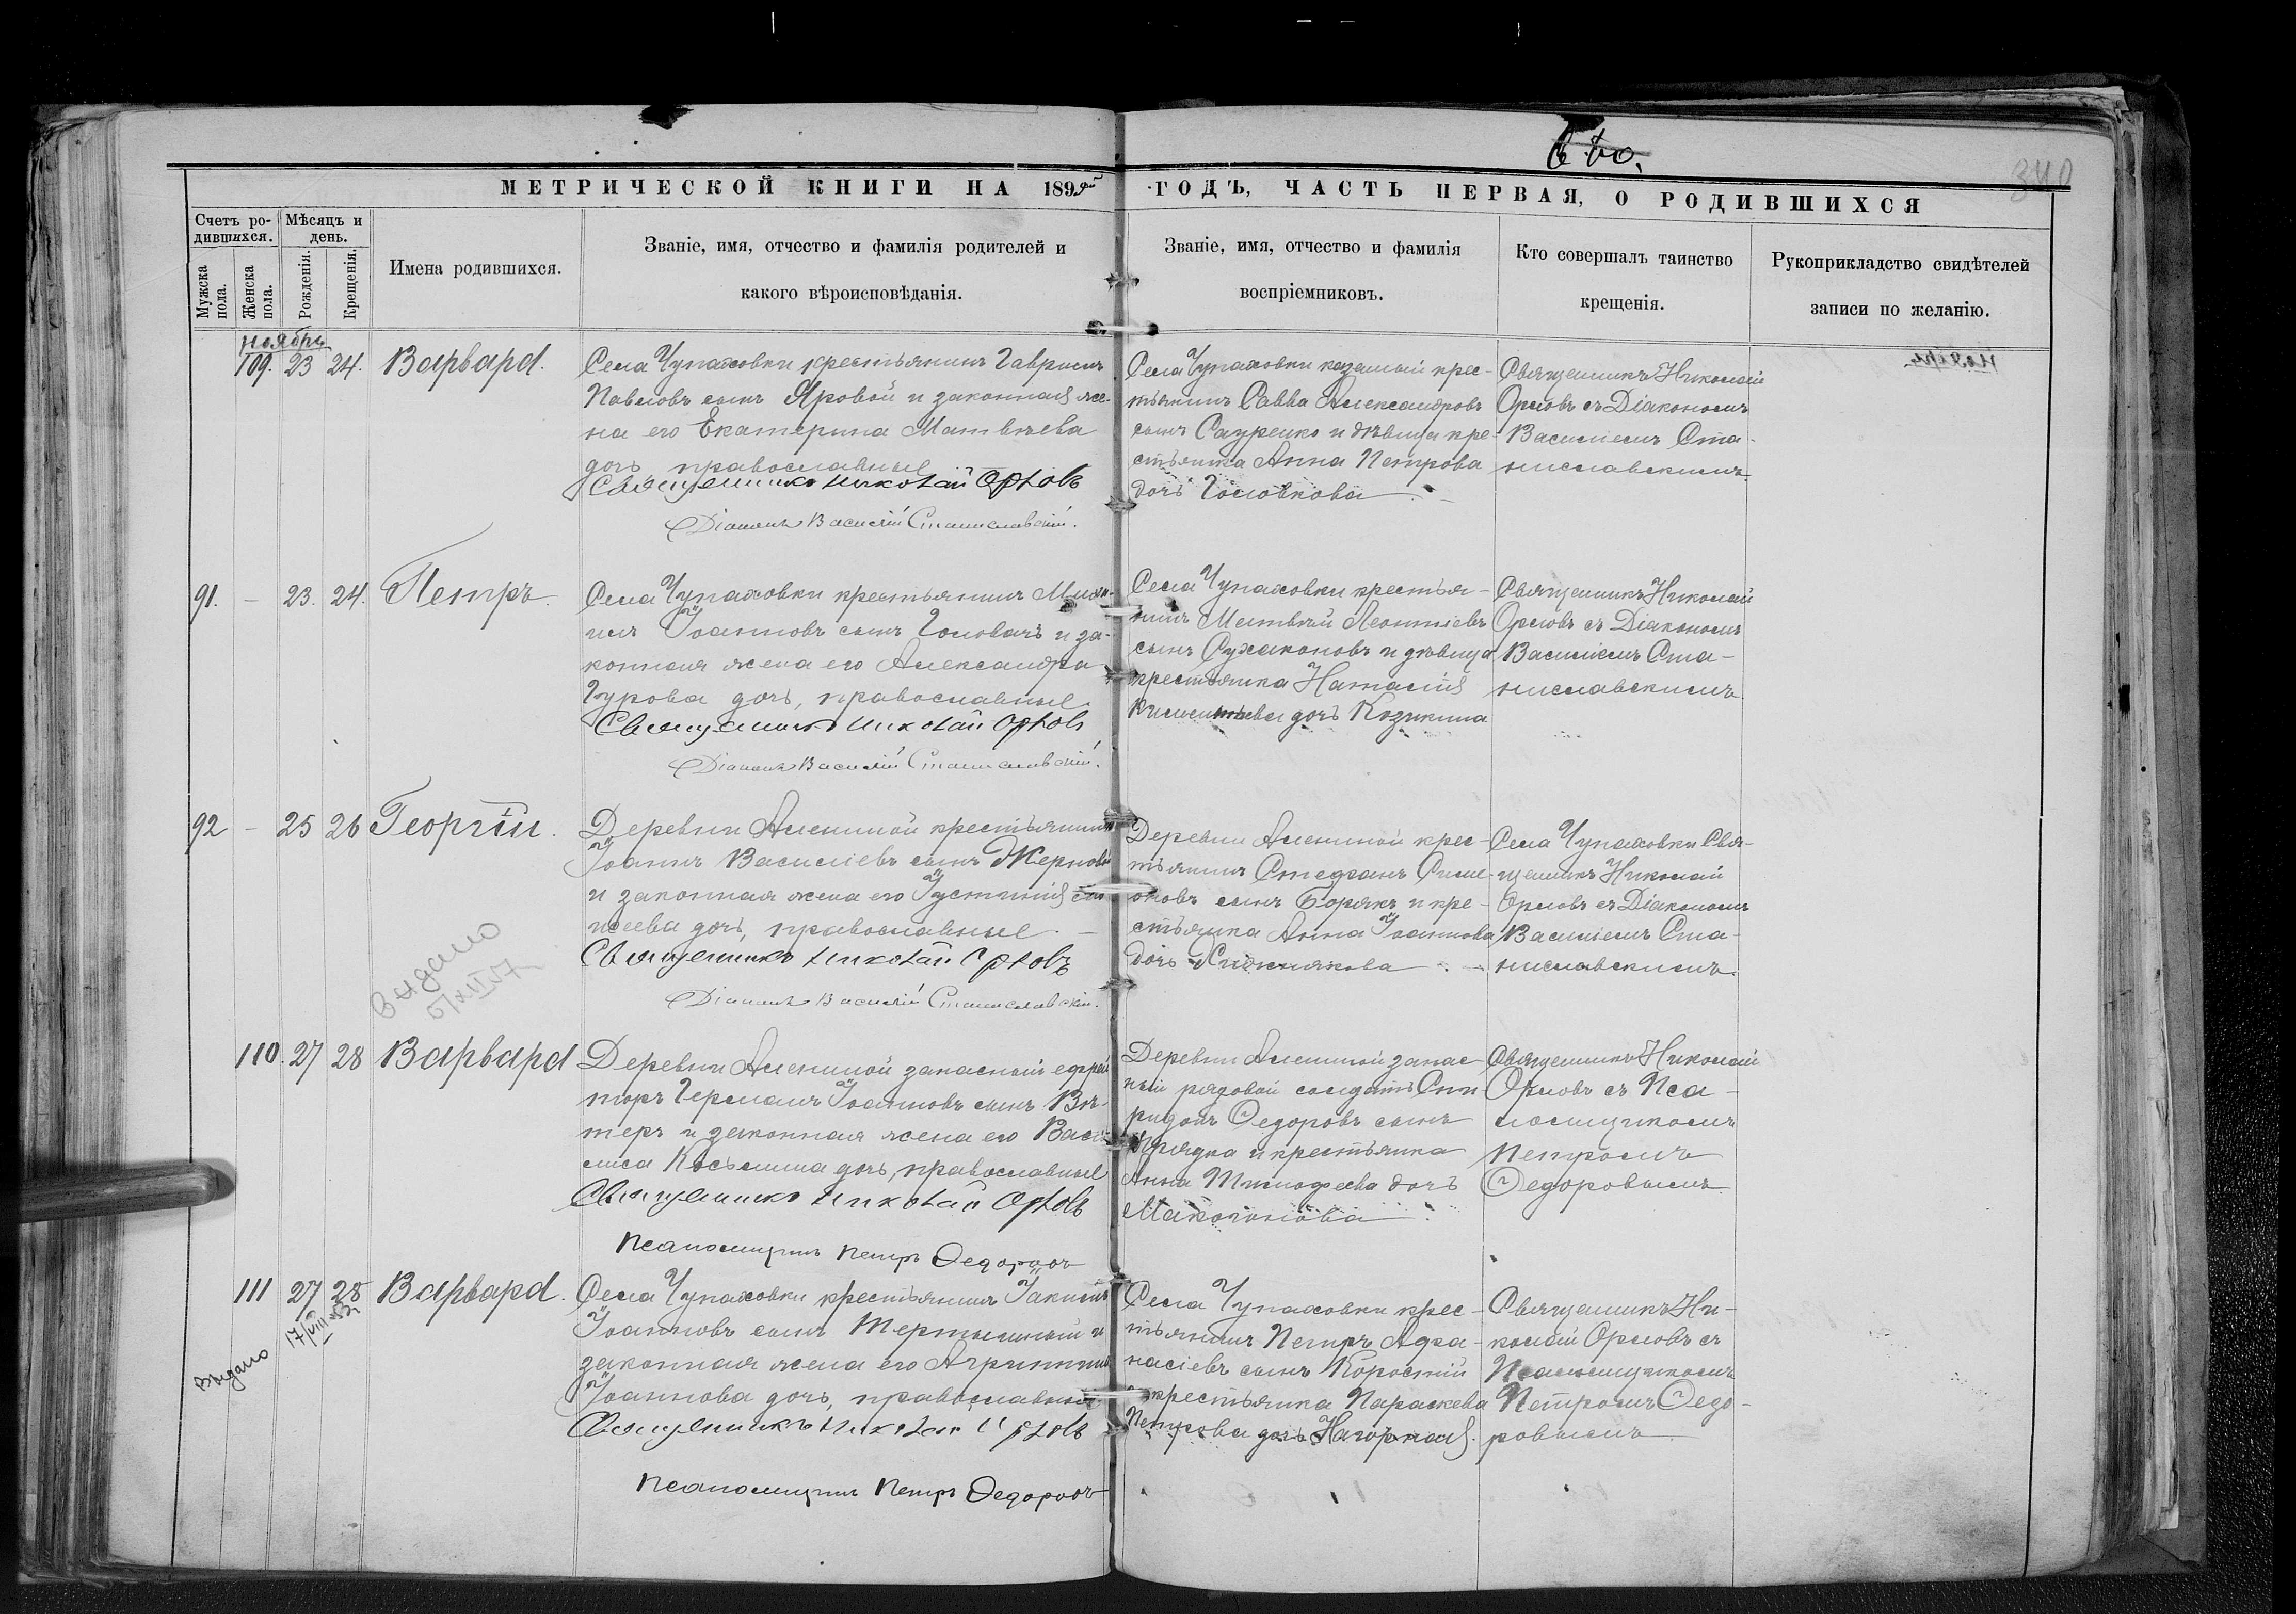 340
МЕТРИЧЕСКОЙ КНИГИ НА 189 ГОДЪ, ЧАСТЬ ПЕРВАЯ, О РОДИВШИХСЯ
Счетъ ро-
дившихся.
Мужска
пола.
Женска
пола.
Мѣсяцъ и
день.
Рожденія.
Крещенія.
Имена родившихся.
Званіе, имя, отчество и фамилія родителей и
какого вѣроисповѣданія.
Званіе, имя, отчество и фамилія
воспріемниковъ.
Кто совершалъ таинство
крещенія.
Рукоприкладство свидѣтелей
записи по желанію.
ноября
109. 23 24. Варвара.
Села Чупаховки крестьянинъ Гавріилъ
Павловъ сынъ Яровой и законная же-
на его Екатерина Матвѣева
дочь, православные
Священникъ Николай Орловъ
Діаконъ Василій Станиславскій.
Села Чупаховки казенный крес-
тьянинъ Савва Александровъ
сынъ Сауренко и дѣвица кре-
стьянка Анна Петрова
дочь Головкова
Священникъ Николай
Орловъ съ Діакономъ
Василіемъ Ста-
ниславскимъ.
91. – 23. 24. Петръ.
Села Чупаховки крестьянинъ Миха-
илъ Іоанновъ сынъ Головачъ и за-
конная жена его Александра
Гурова дочь, православные.
Священникъ Николай Орловъ
Діаконъ Василій Станиславскій.
Села Чупаховки крестья-
нинъ Матвѣй Леонтіевъ
сынъ Сухаконовъ и дѣвица
крестьянка Наталія
дочь Козикина
Священникъ Николай
Орловъ съ Діакономъ
Василіемъ Ста-
ниславскимъ.
92 – 25 26 Георгій.
Деревни Алениной крестьянинъ
Іоаннъ Василіевъ сынъ Жерновой
и законная жена его Іустинія
дочь, православные. –
Священникъ Николай Орловъ
Діаконъ Василій Станиславскій.
Деревни Алениной крес-
тьянинъ Стефанъ Симе-
оновъ сынъ Борякъ и кре-
стьянка Анна Іоаннова
дочь
Села Чупаховки Свя-
щенникъ Николай
Орловъ съ Діакономъ
Василіемъ Ста-
ниславскимъ.
Выдано
110. 27 28 Варвара
Деревни Алениной запасный ефрей-
торъ Германъ Іоанновъ сынъ Вы-
теръ и законная жена его Васи-
лиса Косьмина дочь, православные
Священникъ Николай Орловъ
Псаломщикъ Петръ Ѳедоровъ
Деревни Алениной запас
ный рядовой солдатъ Спи-
ридонъ Ѳедоровъ сынъ
и крестьянка
Анна Тимофеева дочь
Макогонова
Священникъ Николай
Орловъ съ Пса-
ломщикомъ
Петромъ
Ѳедоровымъ
111 27 28 Варвара.
Выдано
17/VIII
Села Чупаховки крестьянинъ Іакимъ
Іоанновъ сынъ Тертышный и
законная жена его Агриппина
Іоаннова дочь, православные
Священникъ Николай Орловъ
Псаломщикъ Петръ Ѳедоровъ
Села Чупаховки крес-
тьянинъ Петръ Афа-
насіевъ сынъ Коростій
и крестьянка Параскева
Петрова дочь Нагорная.
Священникъ Ни-
колай Орловъ съ
Псаломщикомъ
Петромъ Ѳедо-
ровымъ